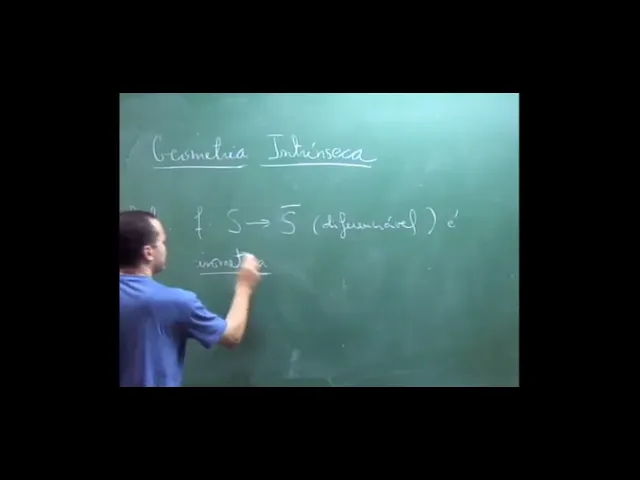 Geometria Intrínseca
f: S → S̅ (diferenciável) é
isometria